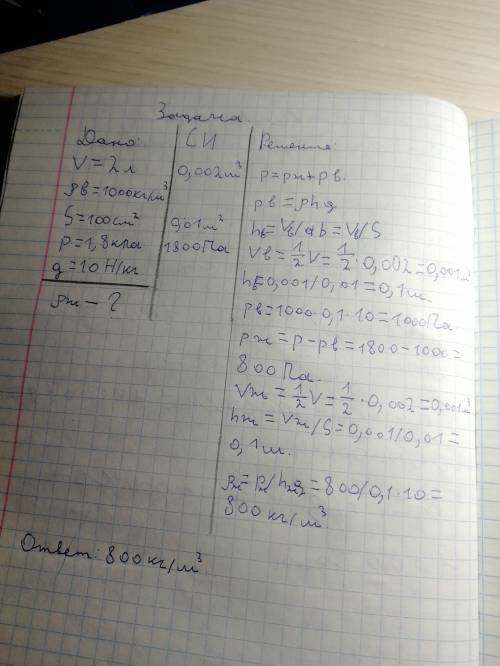 Задача.
Дано:
V = 2 л
ρв = 1000 кг/м³
S = 100 см²
P = 1,8 кПа
g = 10 Н/кг
ρж – ?
СИ
0,002 м³
0,01 м²
1800 Па
Решение:
p = pж + pв
pв = ρhg
hв = Vв/ab = Vв/S
Vв = 1/2 V = 1/2 · 0,002 = 0,001 м³
hв = 0,001/0,01 = 0,1 м.
pв = 1000 · 0,1 · 10 = 1000 Па
pж = p – pв = 1800 – 1000 =
800 Па.
Vж = 1/2 V = 1/2 · 0,002 = 0,001 м³
hж = Vж/S = 0,001/0,01 =
0,1 м.
ρж = Pж/hжg = 800/0,1·10 =
800 кг/м³.
Ответ: 800 кг/м³.